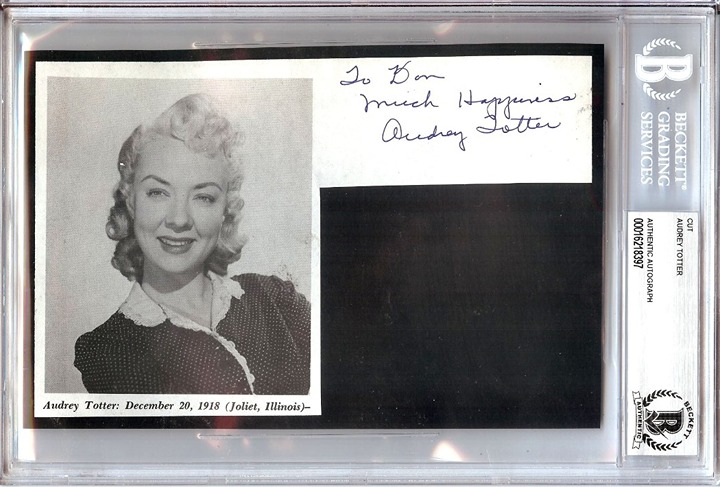 To Don
Much Happiness
Audrey Totter
Audrey Totter: December 20, 1918 (Joliet, Illinois)–
B
BECKETT®
GRADING
SERVICES
CUT
AUDREY TOTTER
AUTHENTIC AUTOGRAPH
00016218397
BECKETT
B
AUTHENTIC